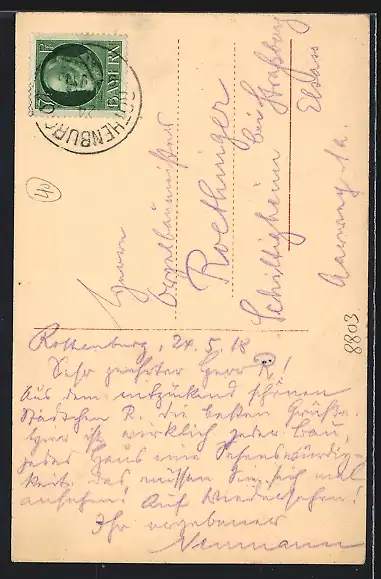 BAYERN
ROTHENBURG
40
Herrn
Orgelbaumeister
Roethinger
Schiltigheim bei Straßburg
Elsass
8803
Rothenburg, 24. 5. 18
Sehr geehrter Herr R!
Aus dem entzückend schönen
Städtchen R. die besten Grüße.
Hier ist wirklich jeder Bau,
jedes Haus eine Sehenswürdig-
keit. Das müssen Sie sich mal
ansehen! Auf Wiedersehen!
Ihr ergebener
Neumann